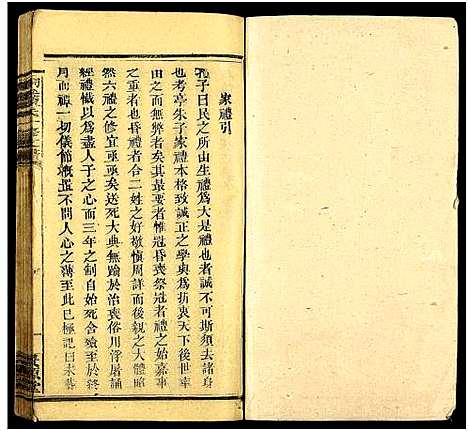 家禮引
孔子曰民之所由生禮爲大是禮也者誠不可斯須去諸身
也考亭朱子家禮本格致誠正之學奥爲折衷天下後世率
由無弊者矣其最要者惟冠昏喪祭冠者禮之始嘉事
之重者也昏禮者合二姓之好敬愼周詳而後親之大體昭
然六禮之修宜亟亟矣送死大典無踰於治喪俗用浮屠誦
經禮懺以爲盡人子之心而三年之制自始死含殮至於終
月而禫一切儀節槪置不問人心之薄至此已極記曰未暮